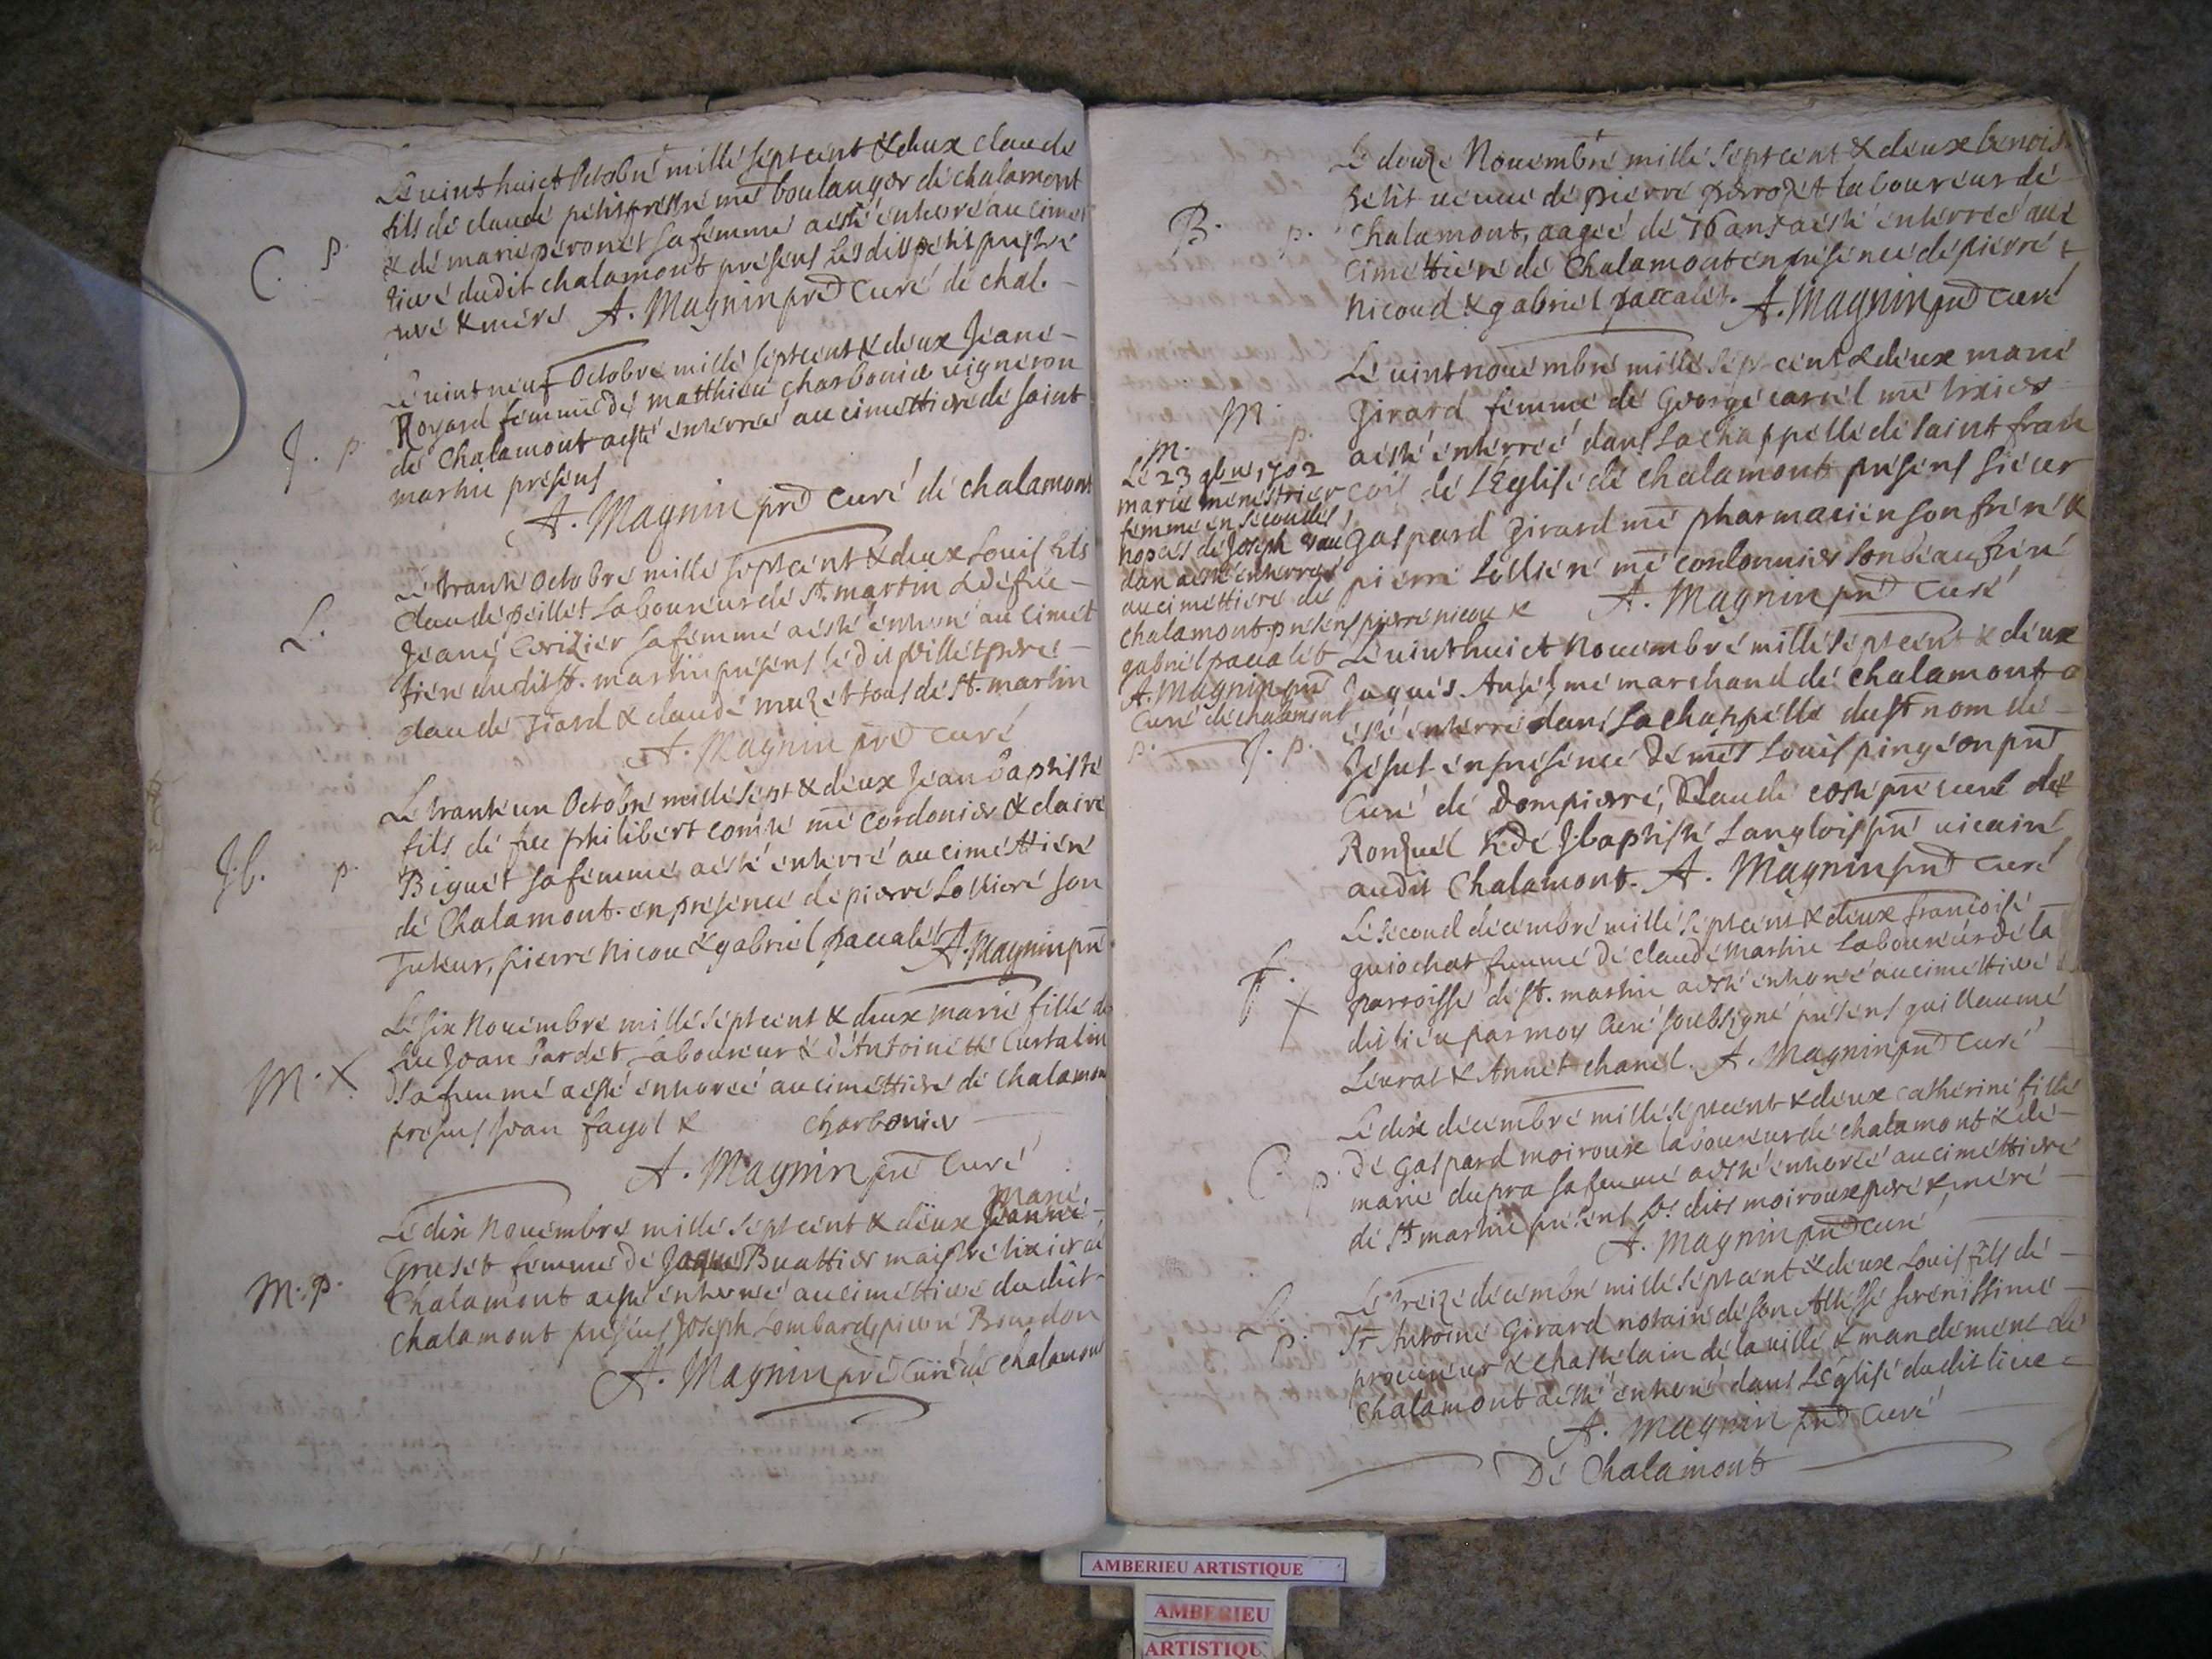 Le uint huict Octobre mille sept cent & deux claude
fils de claude petitprestre me boulanger de chalamont
& de marie peronet sa femme a esté enterré au cimet
tiere dudit chalamont presens lesdits petit prestre
pere & mere A. Magnin pre curé de chal.
C. p.
Le uint neuf Octobre mille sept cent & deux Jeane
Royard femme de matthieu charbonier uigneron
de Chalamont a esté enterreé au cimettiere de saint
martin presens
J. p.
A. Magnin pre curé de chalamont
Le trante Octobre mille sept cent & deux Louis fils
claude peillet laboureur de st. martin & de feue
Jeane Cerizier sa femme a esté enterré au cimet
tiere dudit st. martin presens le dit peillet pere
claude Tiard & claude muzet tous de st. martin
L.
A. Magnin pre curé
Le trante un Octobre mille sept & deux Jean baptiste
fils de feu philibert comte me cordonier & claire
Biguet sa femme a esté enterré au cimettiere
de Chalamont. en presence de pierre Lolliere son
Tuteur, pierre Nicou & gabriel paccalet A. Magnin pre
J.b. p.
Le six Nouembre mille sept cent & deux marie fille de
feu Jean Jardet Laboureur & d'Antoinette Curtalin
sa femme a esté enterreé au cimettiere de chalamon
presens Jean fayol & charbonier
M. X
A. Magnin pre Curé
Le dix Nouembre mille sept cent & deux Jeanne
Marie
Gruset femme de Jaque Buattier maistre tixier de
Chalamont a esté enterreé au cimettiere dudit
Chalamont presens Joseph Lombard, pierre Bourdon
M. p.
A. Magnin pre curé de chalamont
Le douze Nouembre mille sept cent & deux benoiste
petit ueuue de pierre perrozet laboureur de
Chalamont, aageé de 76 ans a esté enterreé aue
cimettiere de Chalamont en presence de pierre
Nicoud & gabriel paccalet. A. Magnin pre curé
B. p.
Le uint nouembre mille sept cent & deux marie
Girard femme de George carrel me
a esté enterreé dans la chappelle de saint fran
cois de l'Eglise de chalamont presens sieur
gaspard Girard me pharmacien son frere &
pierre Lolliere me cordonnier son beaufrere
A. Magnin pre curé
M. p.
m.
Le 23 9bre 1702
marie menestrier
femme en secondes
nopces de Joseph
dan a esté enterreé
au cimettiere de
chalamont presens pierre nicou &
gabriel pacalet
A. Magnin pre
Curé de chalamont
p.
Le uint huict Nouembre mille sept cent & deux
Jaques Ansel me marchand de chalamont a
esté enterré dans la chappelle du st nom de
Jesus en presence de mes Louis pingeon pre
Curé de Dompierre, Claude coste pre curé de
Ronzuel & de J baptiste Langlois pre uicaire
audit Chalamont. A. Magnin pre curé
J. p.
Le second decembre mille sept cent & deux francoise
guiochat femme de claude martin laboureur de la
parroisse de st. martin a esté enterreé au cimettiere
dit lieu par moy Curé soubsigné presens guillaume
Leurat & Annet chanel. A. Magnin pre curé
f. X
Le dix decembre mille sept cent & deux catherine fille
de gaspard moiroux laboureur de chalamont & de
marie dupra sa femme a esté enterreé au cimettiere
de st martin presens les dits moiroux pere & mere
A. Magnin pre curé
C. p.
Le treize decembre mille sept cent & deux Louis fils de
Sr Antoine Girard notaire de son Altesse serenissime
procureur & chastelain de la uille & mandement de
Chalamont a esté enterré dans l'Eglise dudit lieu
L. p.
A. Magnin pre curé
De Chalamont
AMBERIEU ARTISTIQUE
AMBERIEU
ARTISTIQU